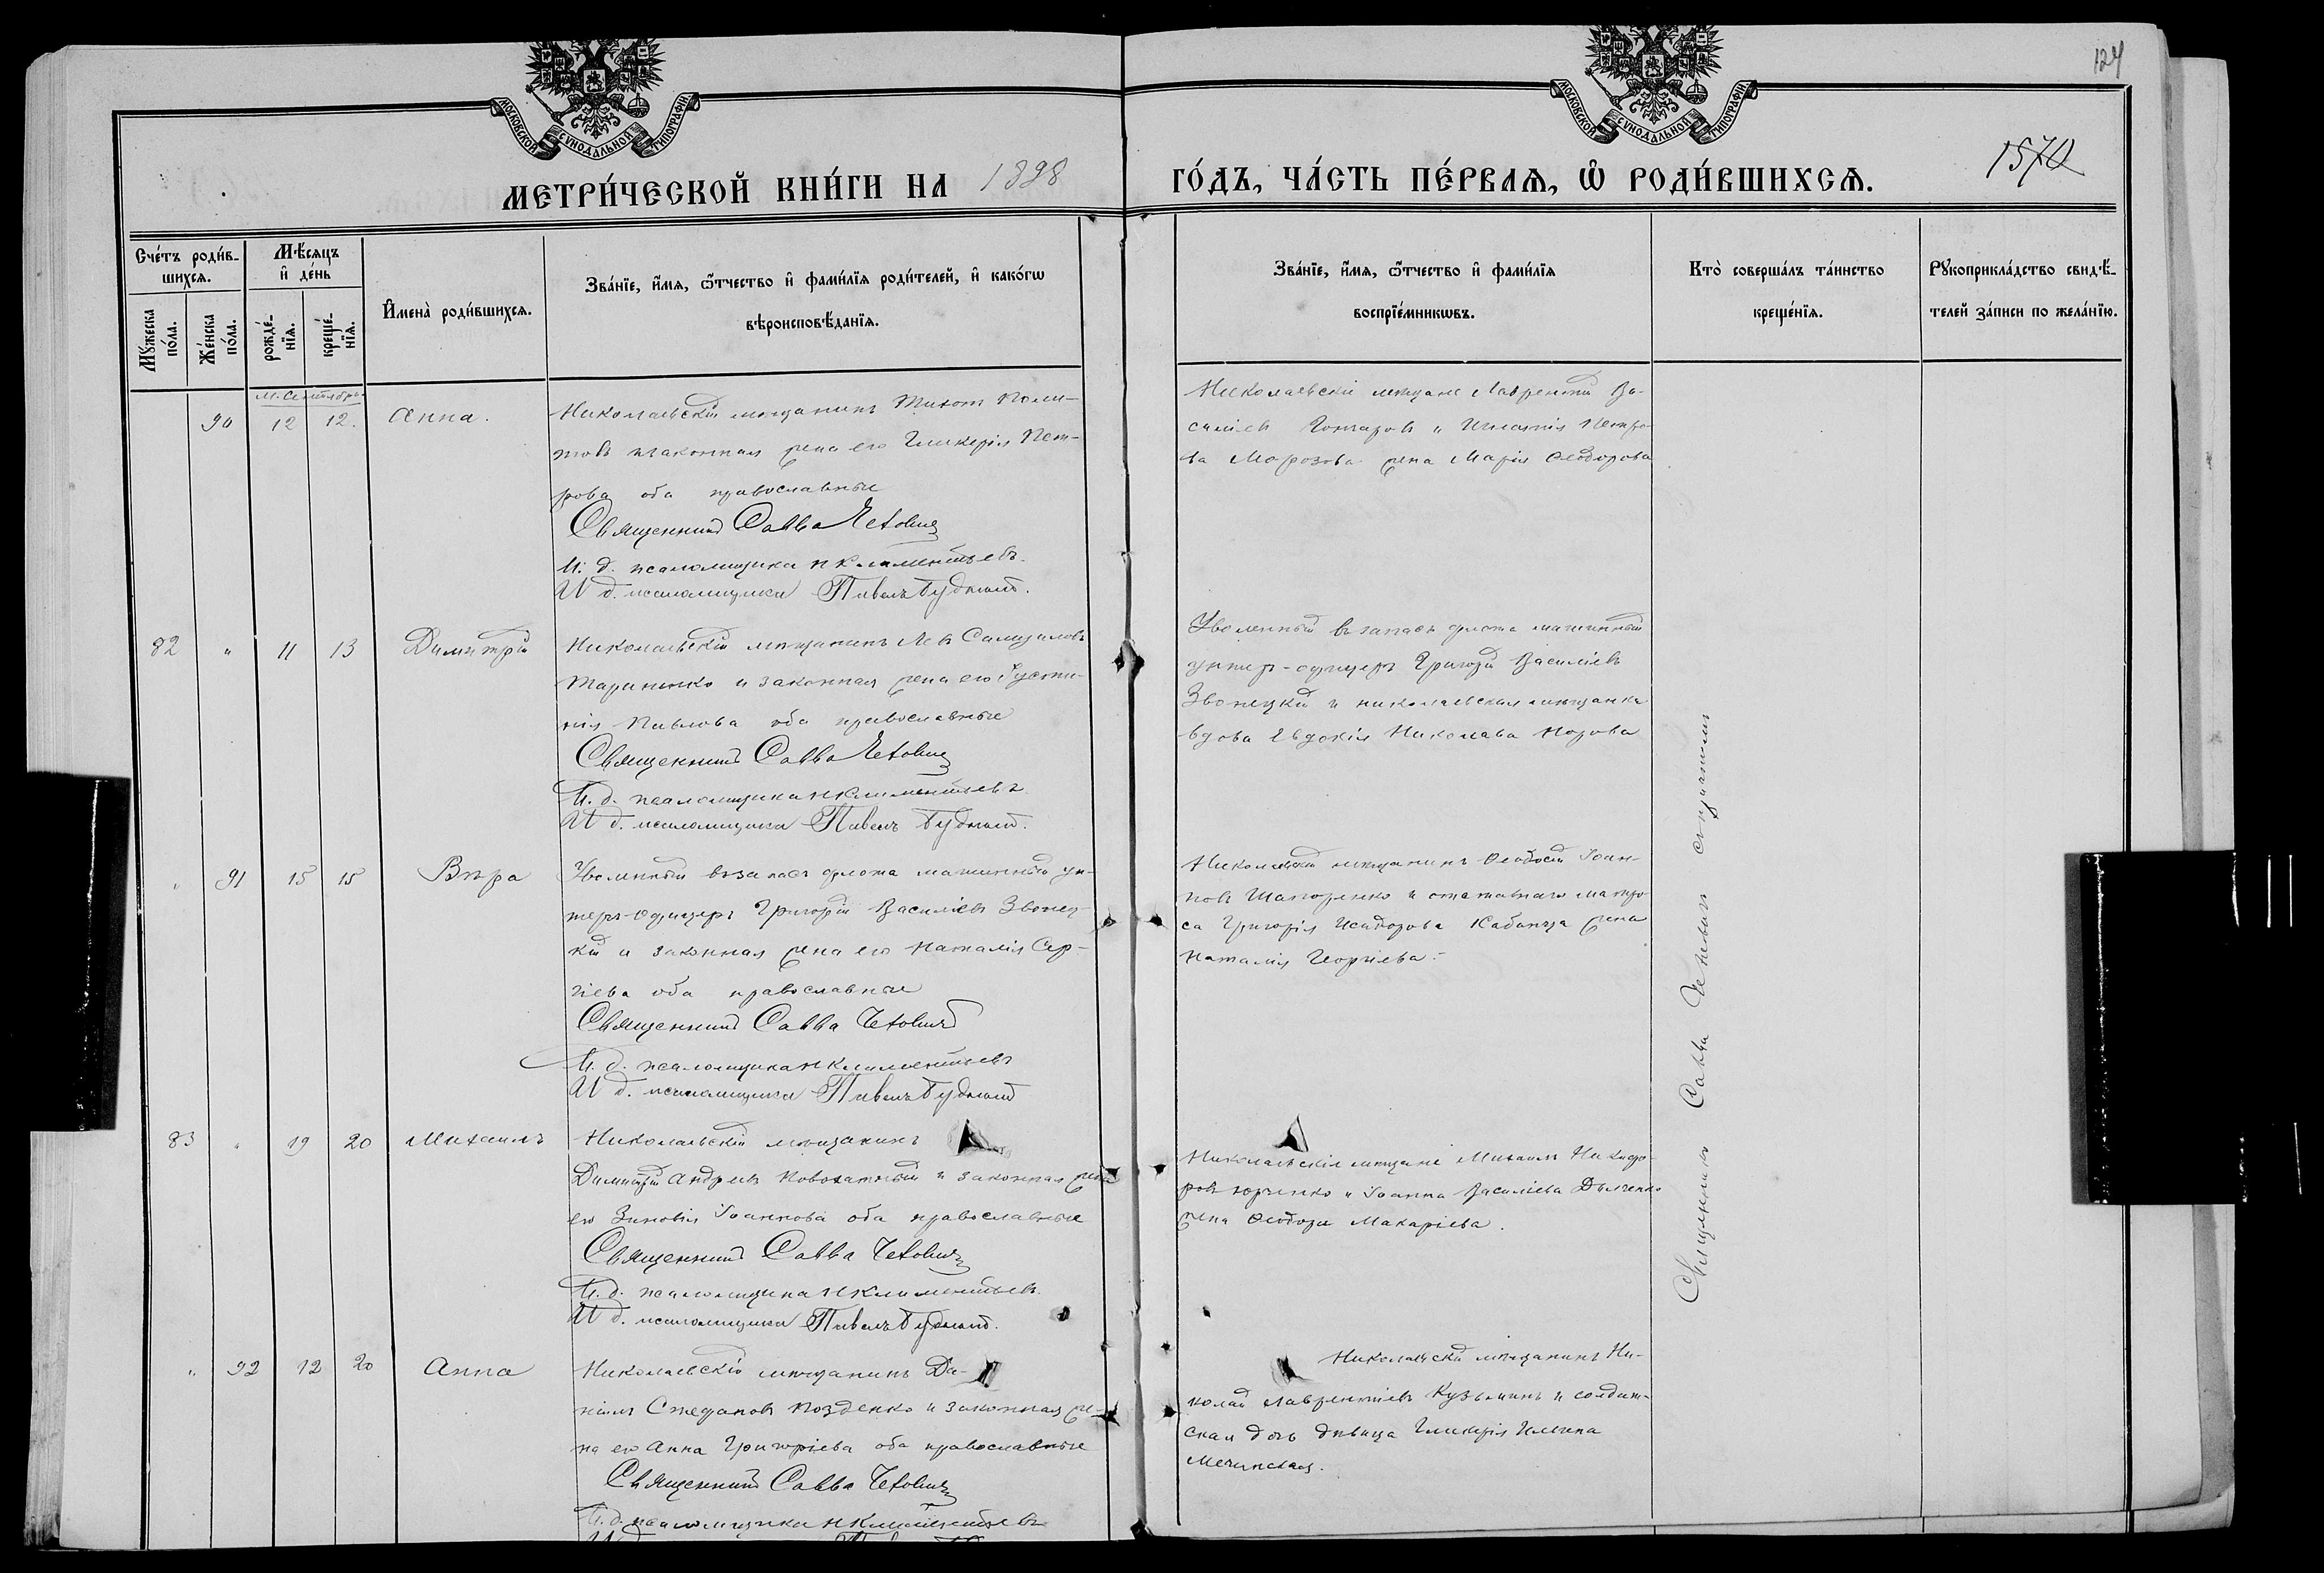 124
МОСКОВСКОЙ СѴНОДАЛЬНОЙ ТИПОГРАФІИ.
МОСКОВСКОЙ СѴНОДАЛЬНОЙ ТИПОГРАФІИ.
1570
МЕТРИ́ЧЕСКОЙ КНИ́ГИ НА 1898 ГО́ДЪ, ЧА́СТЬ ПЕ́РВАѦ, Ѡ РОДИ́ВШИХСѦ.
Сче́тъ роди́в-
шихсѧ.
Мѣ́сѧцъ
и҆ де́нь
Мꙋ́жеска по́ла.
Же́нска по́ла.
рожде́-
нїѧ.
креще́-
нїѧ.
И҆мена̀ роди́вшихсѧ.
Зва́нїе, и҆́мѧ, ѻ҆́тчество и҆ фами́лїѧ роди́телей, и҆ како́гѡ
вѣроисповѣ́данїѧ.
Зва́нїе, и҆́мѧ, ѻ҆́тчество и҆ фами́лїѧ
воспрїе́мникѡвъ.
Кто̀ соверша́лъ та́инство
креще́нїѧ.
Рꙋкоприкла́дство свидѣ́-
телей за́писи по жела́нїю.
м. Сентябрь
90 12 12. Анна.
Николаевскій мѣщанинъ Тихонъ
законная жена его Гликерія Пет-
рова оба православные
Священникъ Савва Чехович
И. д. псаломщика Н Климентьевъ.
И д. псаломщика Павелъ Будный.
Николаевскіе мѣщане Лаврентій Ва-
силіевъ Гончаровъ и Игнатія Петро-
ва Морозова жена Марія Ѳеодорова
82 " 11 13 Димитрій
Николаевскій мѣщанинъ Левъ Самуиловъ
Мариненко и законная жена его Іусти-
нія Павлова оба православные
Священникъ Савва Чехович
И. д. псаломщика Н Климентьевъ
И д. псаломщика Павелъ Будный.
Уволенный въ запасъ флота машинный
унтеръ-офицеръ Григорій Василіевъ
Звонецкій и николаевская мѣщанка
вдова Евдокія Николаева Норова
" 91 15 15 Вѣра
Уволенный въ запасъ флота машинный ун-
теръ-офицеръ Григорій Василіевъ Звонец-
кій и законная жена его Наталія Сер-
гіева оба православные
Священникъ Савва Чеховичъ
И. д. псаломщика Н Климентьевъ
И д. псаломщика Павелъ Будный
Николаевскій мѣщанинъ Ѳеодосій Іоан-
новъ Шапоренко и отставнаго матро-
са Григорія Исидорова Кабанца жена
Наталія Георгіева.
83 " 19 20 Михаилъ
Николаевскій мѣщанинъ
Димитрій Андреевъ Новохатный и законная жена
его Зиновія Іоаннова оба православные
Священникъ Савва Чеховичъ
И. д. псаломщика Н Климентьевъ.
И д. псаломщика Павелъ Будный.
Николаевскіе мѣщане Михаилъ Никифо-
ровъ Юрченко и Іоанна Василіева Дьяченко
жена Ѳеодора Макаріева.
" 92 12 20 Анна
Николаевскій мѣщанинъ Да-
ніилъ Стефановъ Позденко и законная же-
на его Анна Григоріева оба православные
Священникъ Савва Чеховичъ
И. д. псаломщика Н Климентьевъ
Николаевскій мѣщанинъ Ни-
колай Лаврентіевъ Кузьминъ и солдат-
ская дочь дѣвица Гликерія Ильина
Мечинская.
Священникъ Савва Чеховичъ